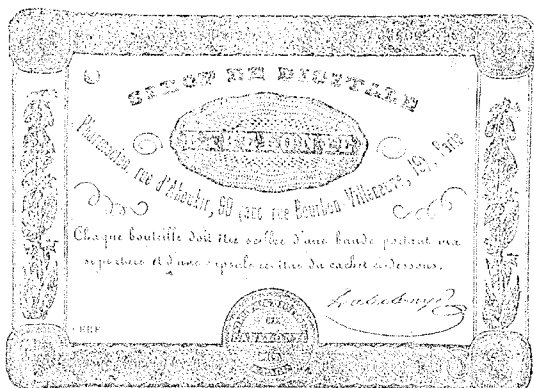 SIROP DE DIGITALE
LABELONYE
Pharmacien, rue d'Aboukir, 99 (anc rue Bourbon-Villeneuve, 19), Paris
Chaque bouteille doit être scellée d'une bande portant ma
signature et d'une capsule revêtue du cachet ci-dessous.
Labelonye